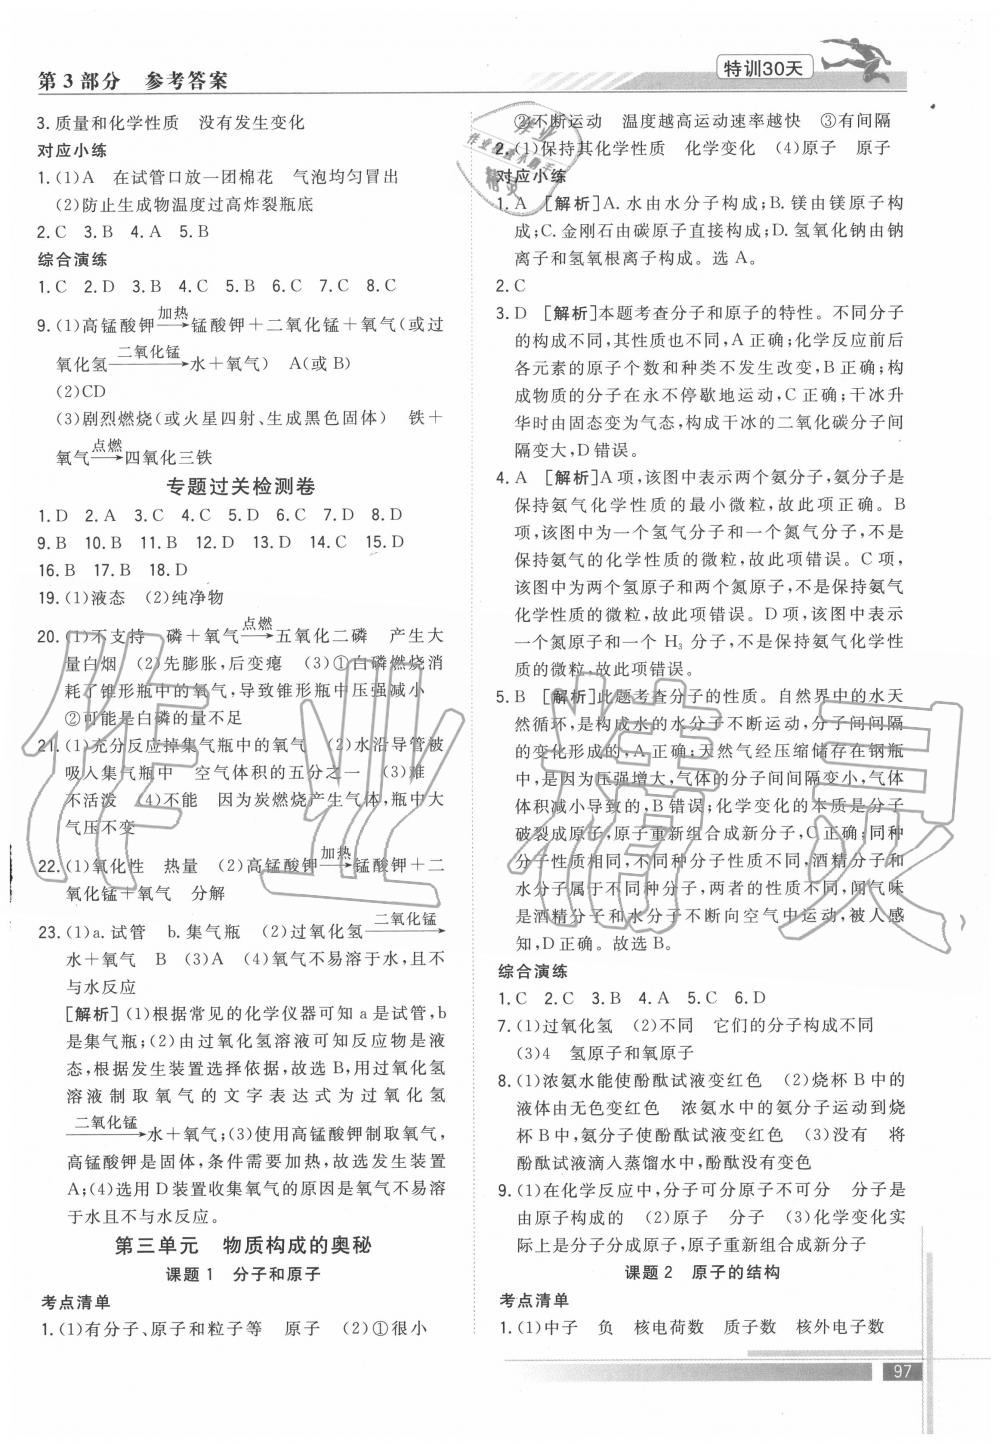 第3部分 参考答案
特训30天
3.质量和化学性质 没有发生变化
对应小练
1.(1)A 在试管口放一团棉花 气泡均匀冒出
(2)防止生成物温度过高炸裂瓶底
2.C 3.B 4.A 5.B
综合演练
1.C 2.D 3.B 4.B 5.B 6.B 7.C 8.C
9.(1)高锰酸钾—加热→锰酸钾＋二氧化锰＋氧气(或过
氧化氢—二氧化锰→水＋氧气) A(或B)
(2)CD
(3)剧烈燃烧(或火星四射、生成黑色固体) 铁＋
氧气—点燃→四氧化三铁
专题过关检测卷
1.D 2.A 3.C 4.C 5.D 6.C 7.D 8.D
9.B 10.B 11.B 12.D 13.D 14.C 15.D
16.B 17.B 18.D
19.(1)液态 (2)纯净物
20.(1)不支持 磷＋氧气—点燃→五氧化二磷 产生大
量白烟 (2)先膨胀,后变瘪 (3)①白磷燃烧消
耗了锥形瓶中的氧气,导致锥形瓶中压强减小
②可能是白磷的量不足
21.(1)充分反应掉集气瓶中的氧气 (2)水沿导管被
吸入集气瓶中 空气体积的五分之一 (3)难
不活泼 (4)不能 因为炭燃烧产生气体,瓶中大
气压不变
22.(1)氧化性 热量 (2)高锰酸钾—加热→锰酸钾＋二
氧化锰＋氧气 分解
23.(1)a.试管 b.集气瓶 (2)过氧化氢—二氧化锰→
水＋氧气 B (3)A (4)氧气不易溶于水,且不
与水反应
[解析](1)根据常见的化学仪器可知a是试管,b
是集气瓶;(2)由过氧化氢溶液可知反应物是液
态,根据发生装置选择依据,故选B,用过氧化氢
溶液制取氧气的文字表达式为过氧化氢
—二氧化锰→水＋氧气;(3)使用高锰酸钾制取氧气,
高锰酸钾是固体,条件需要加热,故选发生装置
A;(4)选用D装置收集氧气的原因是氧气不易溶
于水且不与水反应。
第三单元 物质构成的奥秘
课题1 分子和原子
考点清单
1.(1)有分子、原子和粒子等 原子 (2)①很小
②不断运动 温度越高运动速率越快 ③有间隔
2.(1)保持其化学性质 化学变化 (4)原子 原子
对应小练
1.A [解析]A.水由水分子构成;B.镁由镁原子构
成;C.金刚石由碳原子直接构成;D.氢氧化钠由钠
离子和氢氧根离子构成。选A。
2.C
3.D [解析]本题考查分子和原子的特性。不同分子
的构成不同,其性质也不同,A正确;化学反应前后
各元素的原子个数和种类不发生改变,B正确;构
成物质的分子在永不停歇地运动,C正确;干冰升
华时由固态变为气态,构成干冰的二氧化碳分子间
隔变大,D错误。
4.A [解析]A项,该图中表示两个氨分子,氨分子是
保持氨气化学性质的最小微粒,故此项正确。B
项,该图中为一个氢气分子和一个氮气分子,不是
保持氨气的化学性质的微粒,故此项错误。C项,
该图中为两个氢原子和两个氮原子,不是保持氨气
化学性质的微粒,故此项错误。D项,该图中表示
一个氮原子和一个H₃分子,不是保持氨气化学性
质的微粒,故此项错误。
5.B [解析]此题考查分子的性质。自然界中的水天
然循环,是构成水的水分子不断运动,分子间间隔
的变化形成的,A正确;天然气经压缩储存在钢瓶
中,是因为压强增大,气体的分子间间隔变小,气体
体积减小导致的,B错误;化学变化的本质是分子
破裂成原子,原子重新组合成新分子,C正确;同种
分子性质相同,不同种分子性质不同,酒精分子和
水分子属于不同种分子,两者的性质不同,闻气味
是酒精分子和水分子不断向空气中运动,被人感
知,D正确。故选B。
综合演练
1.C 2.C 3.B 4.A 5.C 6.D
7.(1)过氧化氢 (2)不同 它们的分子构成不同
(3)4 氢原子和氧原子
8.(1)浓氨水能使酚酞试液变红色 (2)烧杯B中的
液体由无色变红色 浓氨水中的氨分子运动到烧
杯B中,氨分子使酚酞试液变红色 (3)没有 将
酚酞试液滴入蒸馏水中,酚酞没有变色
9.(1)在化学反应中,分子可分原子不可分 分子是
由原子构成的 (2)原子 分子 (3)化学变化实
际上是分子分成原子,原子重新组合成新分子
课题2 原子的结构
考点清单
1.(1)中子 负 核电荷数 质子数 核外电子数
97
作业精灵
作业
作业检查小助手
精灵